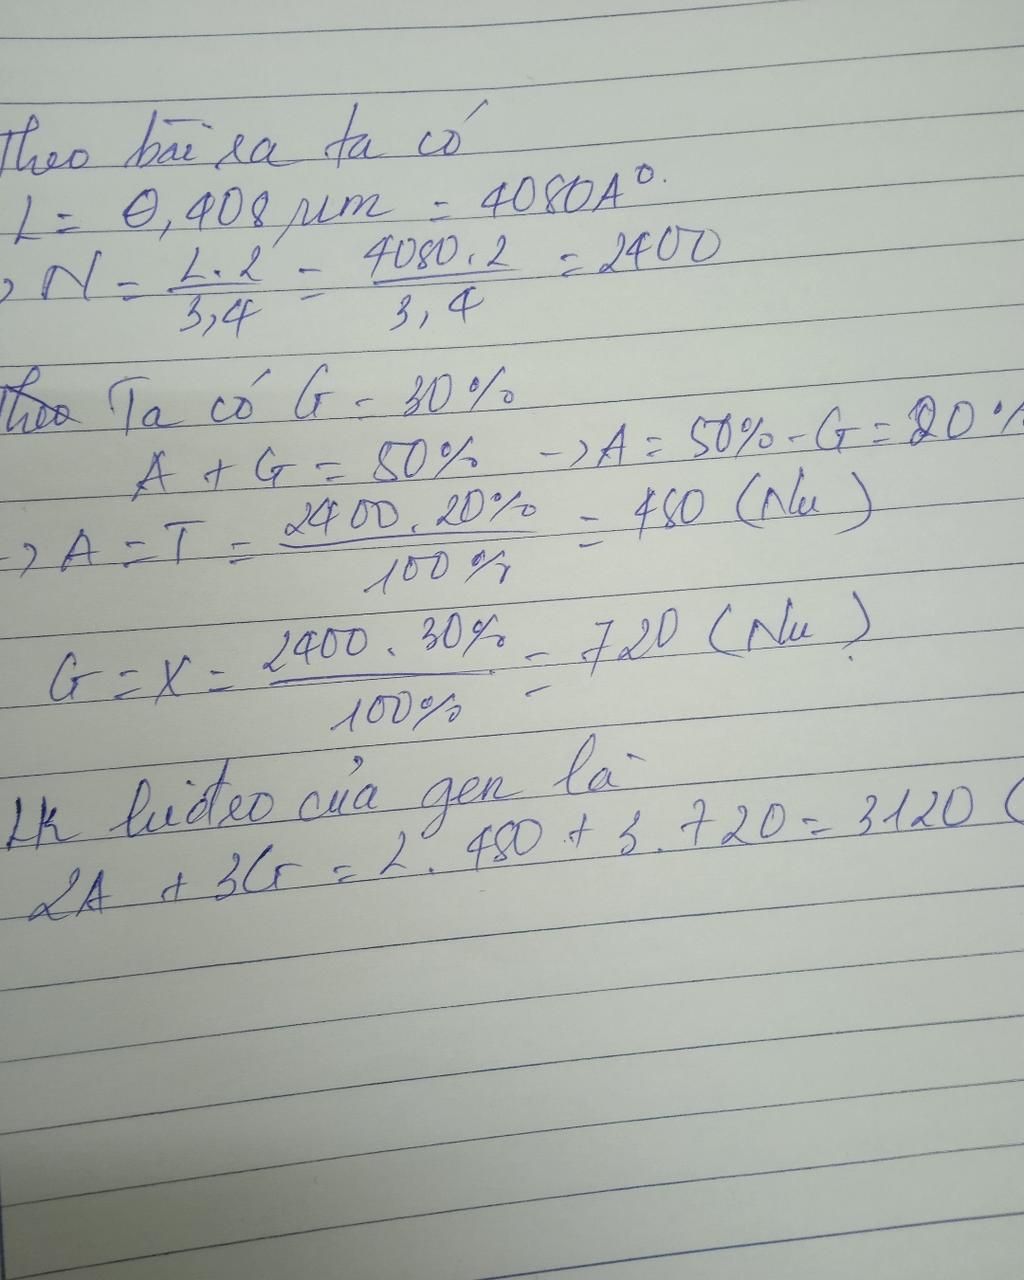 Theo bài ra ta có
L = 0,408 μm = 4080A°.
→ N = L.2/3,4 = 4080.2/3,4 = 2400
Theo Ta có G = 30%
A + G = 50% -> A = 50% - G = 20%
-> A = T = 2400.20%/100% = 480 (Nu)
G = X = 2400.30%/100% = 720 (Nu)
LK hiđro của gen là
2A + 3G = 2.480 + 3.720 = 3120 (